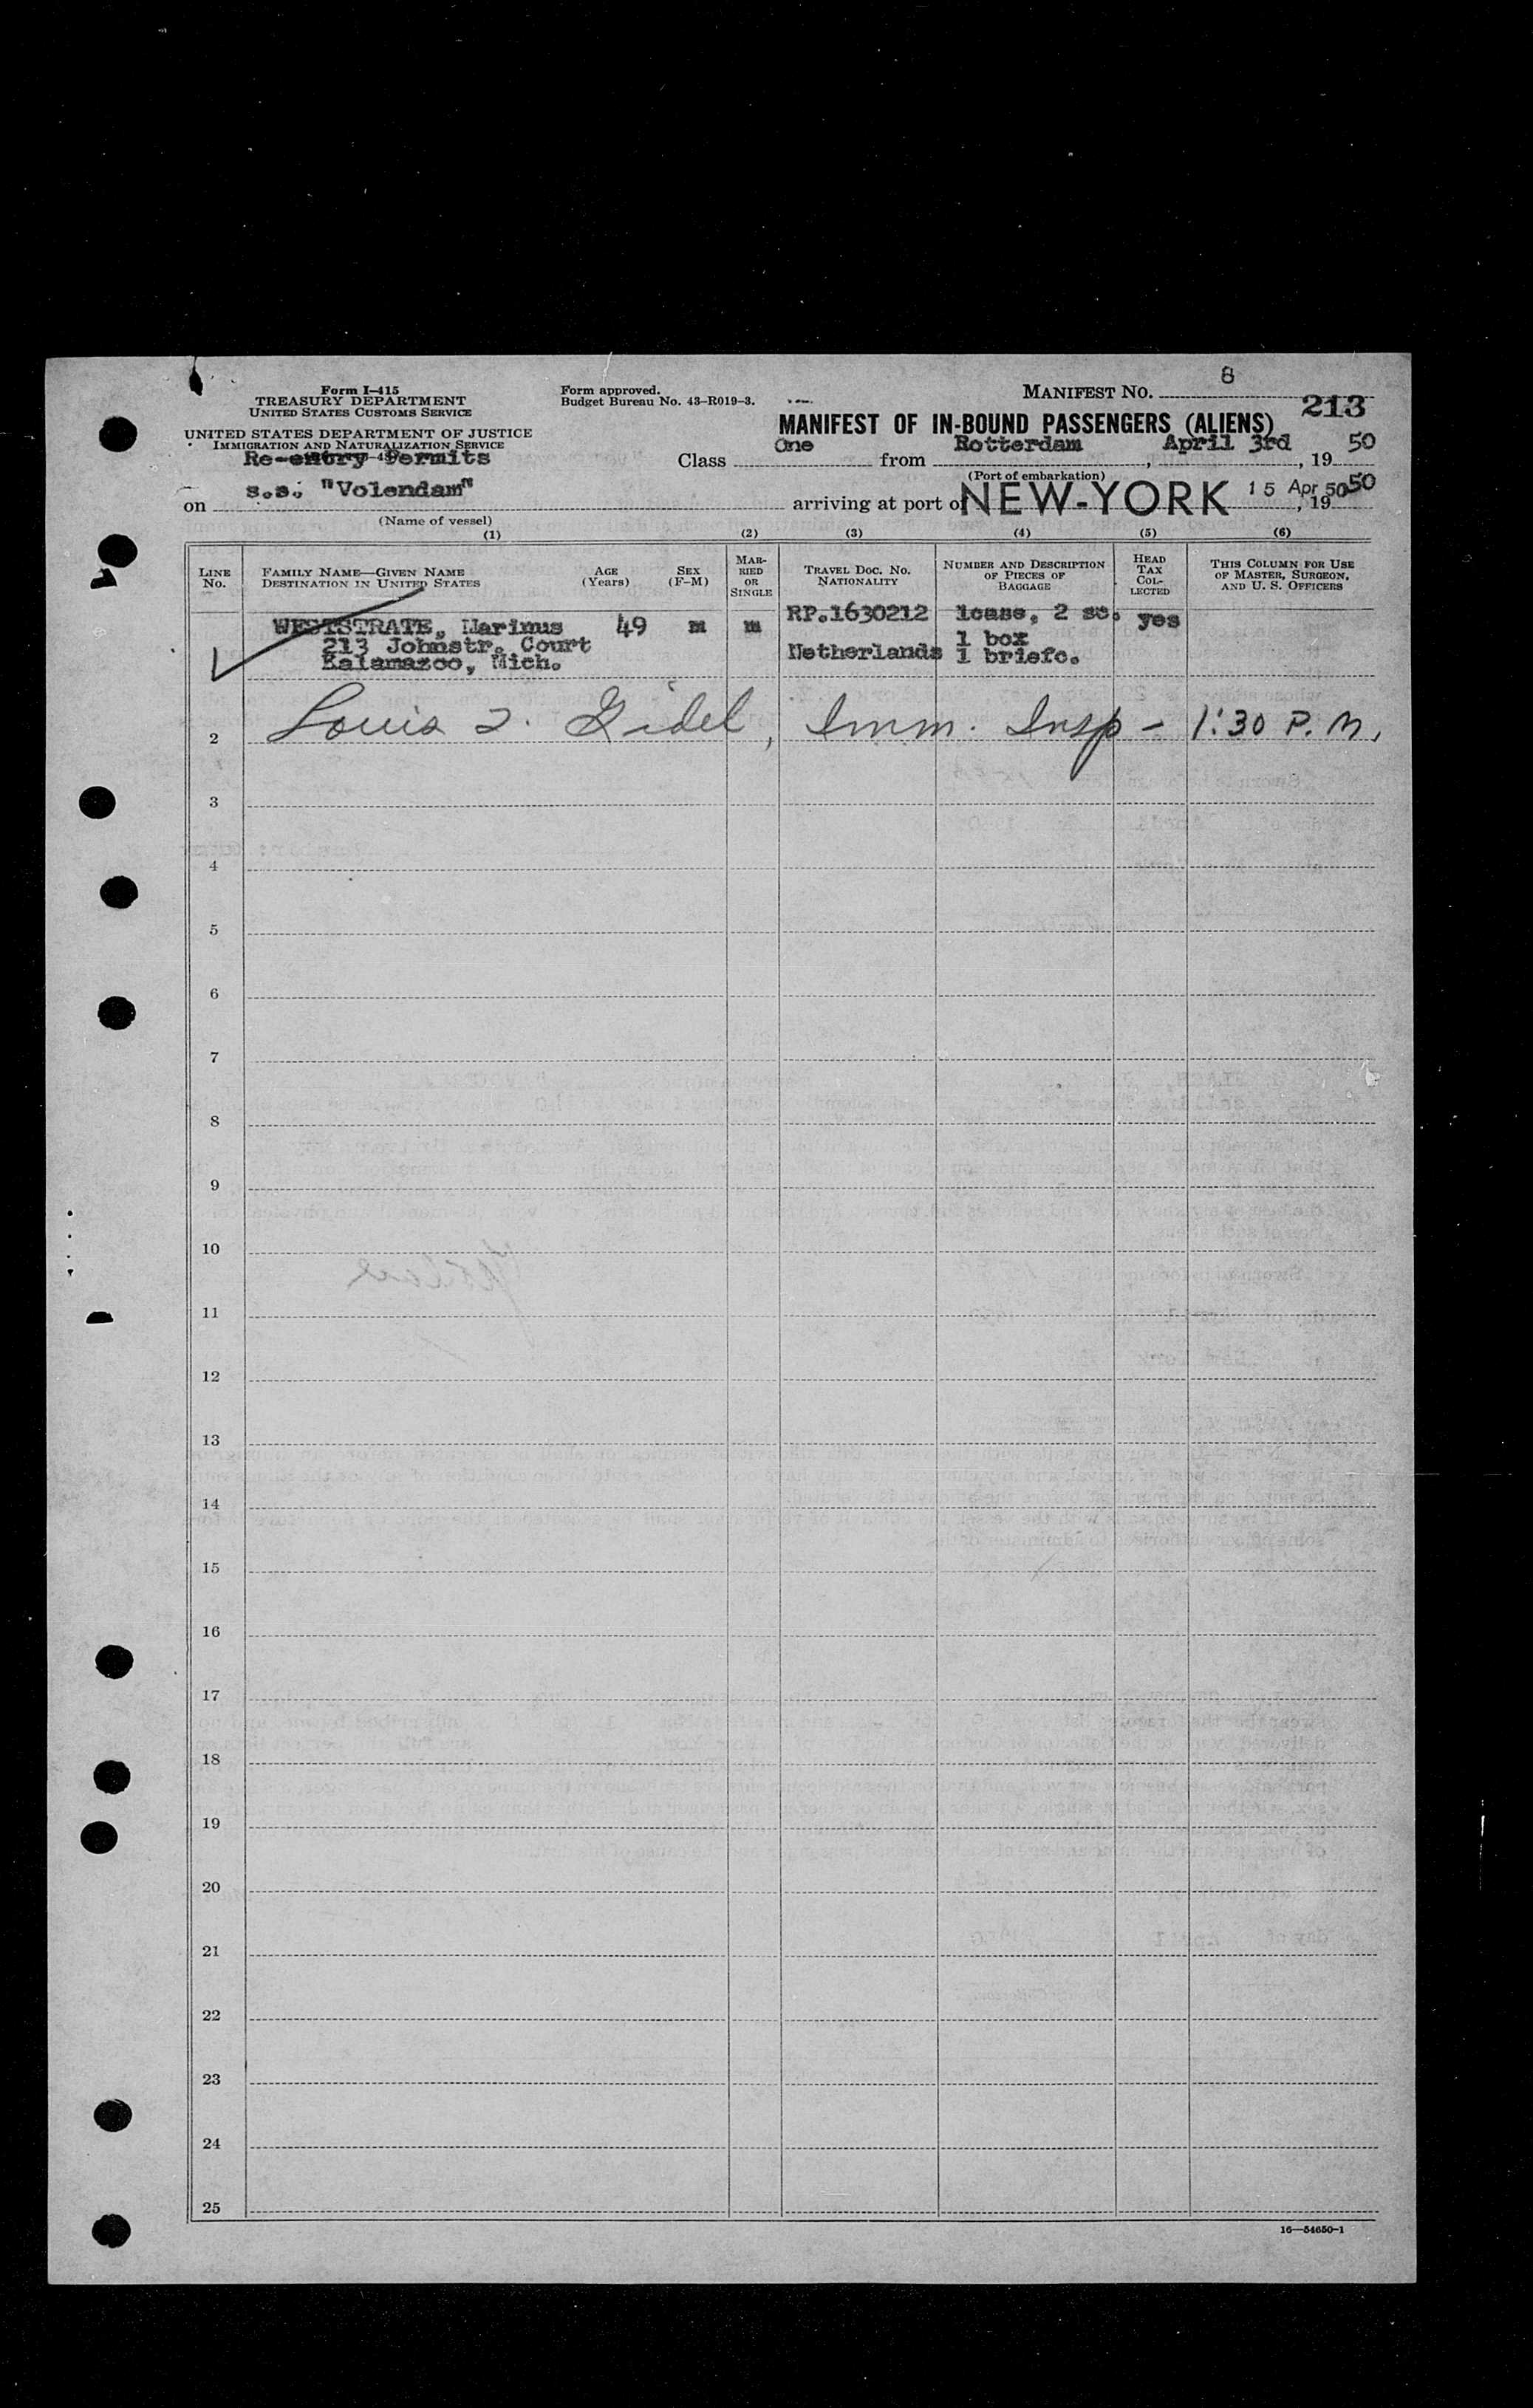 8
Form I-415
TREASURY DEPARTMENT
UNITED STATES CUSTOMS SERVICE
Form approved.
Budget Bureau No. 43-R019-3.
MANIFEST NO.
213
UNITED STATES DEPARTMENT OF JUSTICE
IMMIGRATION AND NATURALIZATION SERVICE
MANIFEST OF IN-BOUND PASSENGERS (ALIENS)
Re-entry Permits
Class One from Rotterdam, April 3rd, 19 50
(Port of embarkation)
on s.s. "Volendam" arriving at port of NEW-YORK 15 Apr 50, 19 50
(Name of vessel)
(1) (2) (3) (4) (5) (6)
LINE NO. FAMILY NAME—GIVEN NAME DESTINATION IN UNITED STATES AGE (Years) SEX (F-M) MARRIED OR SINGLE TRAVEL DOC. NO. NATIONALITY NUMBER AND DESCRIPTION OF PIECES OF BAGGAGE HEAD TAX COLLECTED THIS COLUMN FOR USE OF MASTER, SURGEON, AND U. S. OFFICERS
WESTSTRATE, Marinus 49 m m RP.1630212 1case, 2 sc. yes
213 Johnstr. Court 1 box
Kalamazoo, Mich. Netherlands 1 briefc.
2 Louis Gidel, Imm. Insp - 1:30 P.M.
3
4
5
6
7
8
9
10
11
12
13
14
15
16
17
18
19
20
21
22
23
24
25
16—54650-1